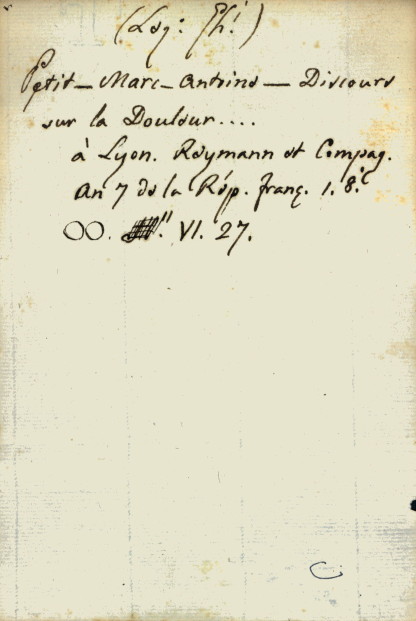 (Log: Ph:)
Petit - Marc - Antoine - Discours
sur la Douleur....
à Lyon. Reymann et Compag.
An 7 de la Rép. franç. 1. 8.º
OO. VI. 27.
C